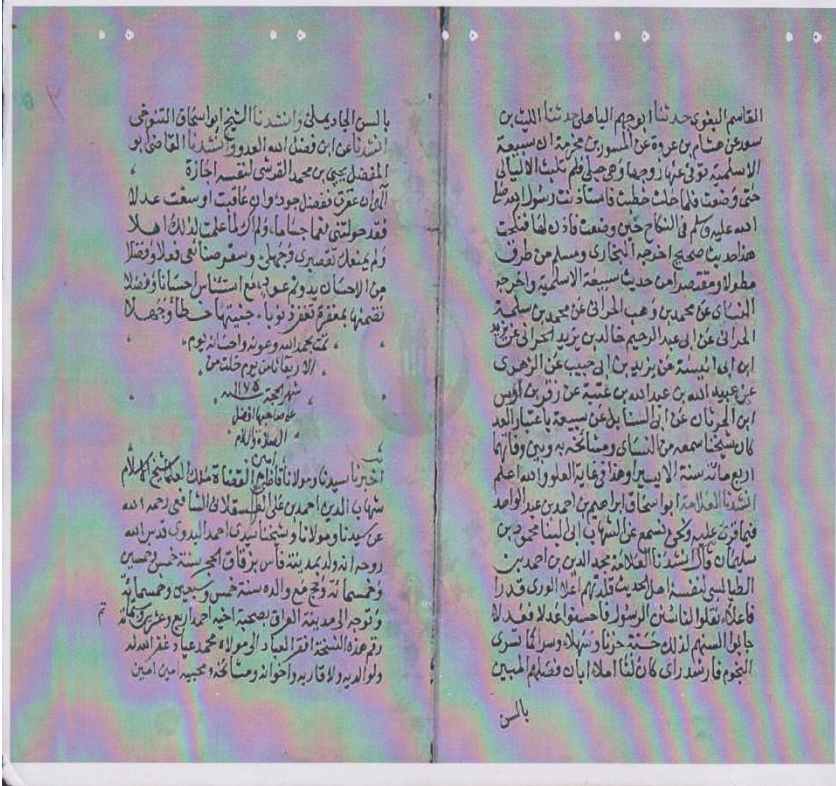 القاسم البغوى حدثنا ابو جهم الباهلى حدثنا الليث بن
سعد عن هشام بن عروة عن المسور بن مخرمة ان سبيعة
الاسلمية توفى عنها زوجها وهى حبلى فلم تلبث الا ليالى
حتى وضعت فلما حلت خطبت فاستاذنت رسول الله صلى
الله عليه وسلم فى النكاح حين وضعت فاذن لها فنكحت
هذا حديث صحيح اخرجه البخارى ومسلم من طرق
مطولا ومقتصرا من حديث سبيعة الاسلمية واخرجه
النساى عن محمد بن وهب الحرانى عن محمد بن سلمة
الحرانى عن ابى عبد الرحيم خالد بن يزيد الحرانى عن زيد
ابن ابى انيسة عن يزيد بن ابى حبيب عن الزهرى
عن عبيد الله بن عبد الله بن عتبة عن زفر بن اوس
ابن الحدثان عن ابى السنابل عن سبيعة باعتبار العدد
كان شيخنا سمعه من النساى وصافحه به وبين وفاتهما
اربع مائة سنة الا يسيرا وهذا فى غاية العلو والله اعلم
انشدنا العلامة ابو اسحاق ابراهيم بن احمد بن عبد الواحد
فيما قرئ عليه ونحن نسمع عن الشهاب ابى الثنا محمود بن
سليمان قال انشدنا العلامة مجد الدين بن احمد بن
لنفسه اهل الحديث قلدتهم اعلا الورى قدرا
فاعلاء نقلوا لنا سنن الرسول فاحسنوا عدلا
جابوا السبهم لذلك حزنا وسهلا وسرا كما تسرى
النجوم فارشد راى كان لنا املاه ابان فضلهم المبين
بالسن
بالسن الحاد يملى وانشدنا الشيخ ابو اسحاق التنوخى
انشدنا عن ابن فضل الله العدوى وانشدنا القاضى ابو
المفضل يحيى بن محمد القرشى لنفسه اجازة
الهى ان غفرت ففضل جود وان عاقبت اوسعت عدلا
فقد خولتنى نعما جساما ولم اك لما علمت لذاك اهلا
ولم يمنعك تقصيرى وجهلى
من الاحسان مع استئناس احسانا وفضلا
بمغفرة تغفر ذنوبا جنيتها خطأ وجهلا
تمت بحمد الله وعونه واحسانه يوم
الاربعا ثامن يوم خلت من
شهر الحجة سنة ١١٧٥
على صاحبها افضل
الصلاة والسلام
امين
اخبرنا سيدنا ومولانا قاضى القضاة ملك العلما شيخ الاسلام
شهاب الدين احمد بن على العسقلانى الشافعى رحمه الله
عن سيدنا ومولانا وشيخنا سيدى احمد البدوى قدس الله
روحه انه ولد بمدينة فاس بزقاق الحجر سنة خمس وخمسين
وخمسمائة وحج مع والده سنة خمس وسبعين وخمسمائة
وتوجه الى مدينة العراق بصحبة اخيه احمد اربع وعشرين وستمائة
تم
رقم هذه النسخة افقر العباد الى مولاه محمد عياد غفر الله له
ولوالديه ولاقاربه واخوانه ومشائخه ومحبيه امين امين